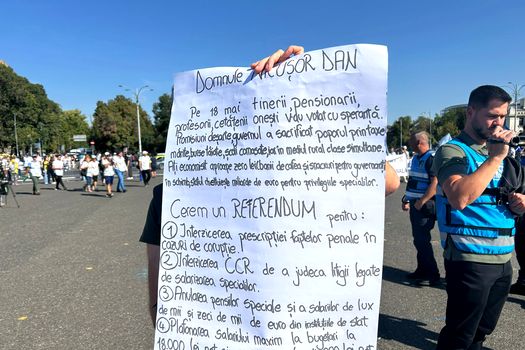 Domnule NICUȘOR DAN
Pe 18 mai tinerii, pensionarii,
profesorii, cetățenii onești v-au votat cu speranță.
Promisiuni deșarte, guvernul a sacrificat poporul prin taxe
mărite, burse tăiate, școli comasate, iar în mediul rural clase simultane.
Ați economisit aproape zero lei: banii de cafea și sucuri pentru guvernanți
în schimb, statul cheltuiește miliarde de euro pentru privilegiile specialilor.
Cerem un REFERENDUM pentru:
① Interzicerea prescripției faptelor penale în
cazuri de corupție
② Interzicerea CCR de a judeca litigii legate
de salarizarea specialilor.
③ Anularea pensiilor speciale și a salariilor de lux
de mii și zeci de mii de euro din instituțiile de stat
④ Plafonarea salariului maxim la bugetari la
18.000 lei net